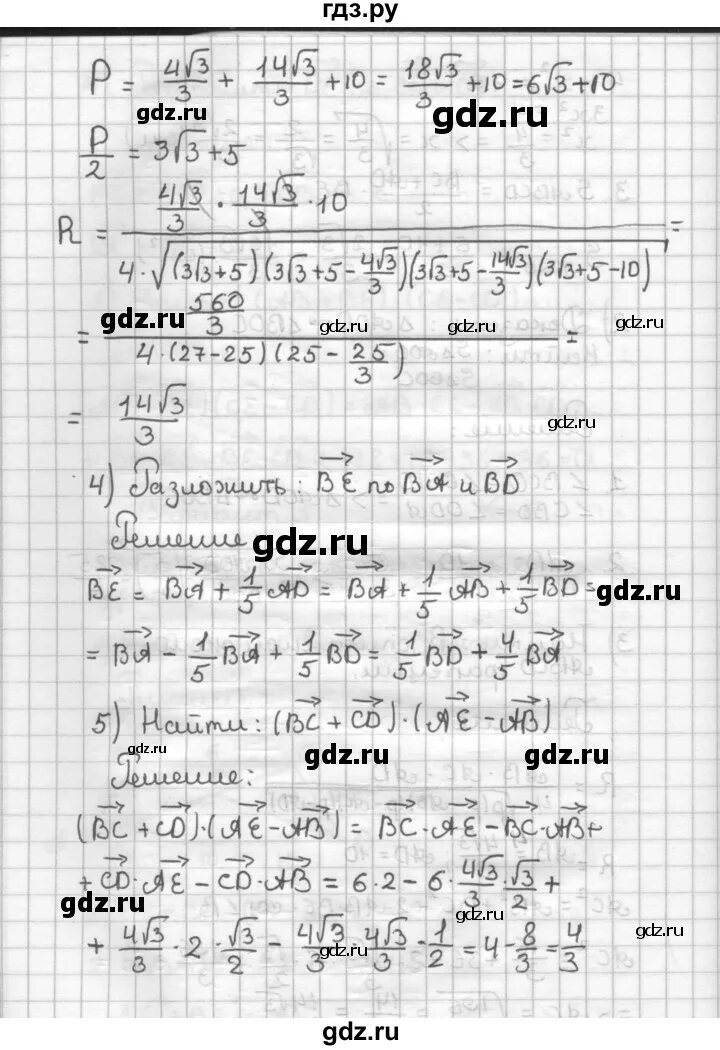 гдз.ру
P = 4√3/3 + 14√3/3 + 10 = 18√3/3 + 10 = 6√3 + 10
gdz.ru
gdz.ru
P/2 = 3√3 + 5
R = (4√3/3 · 14√3/3 · 10) / (4 · √((3√3+5)(3√3+5 - 4√3/3)(3√3+5 - 14√3/3)(3√3+5-10))) =
gdz.ru
gdz.ru
gdz.ru
= (560/3) / (4·(27-25)(25 - 25/3)) =
= 14√3/3
gdz.ru
4) Разложить: BE по BA и BD
Решение
gdz.ru
BE = BA + 1/5 AD = BA + 1/5 AB + 1/5 BD =
gdz.ru
= BA - 1/5 BA + 1/5 BD = 1/5 BD + 4/5 BA
5) Найти: (BC + CD)·(AE - AB)
gdz.ru
gdz.ru
gdz.ru
Решение:
(BC + CD)·(AE - AB) = BC·AE - BC·AB +
+ CD·AE - CD·AB = 6·2 - 6·4√3/3·√3/2 +
gdz.ru
gdz.ru
+ 4√3/3 · 2 · √3/2 - 4√3/3 · 4√3/3 · 1/2 = 4 - 8/3 = 4/3
gdz.ru
gdz.ru
gdz.ru
gdz.ru